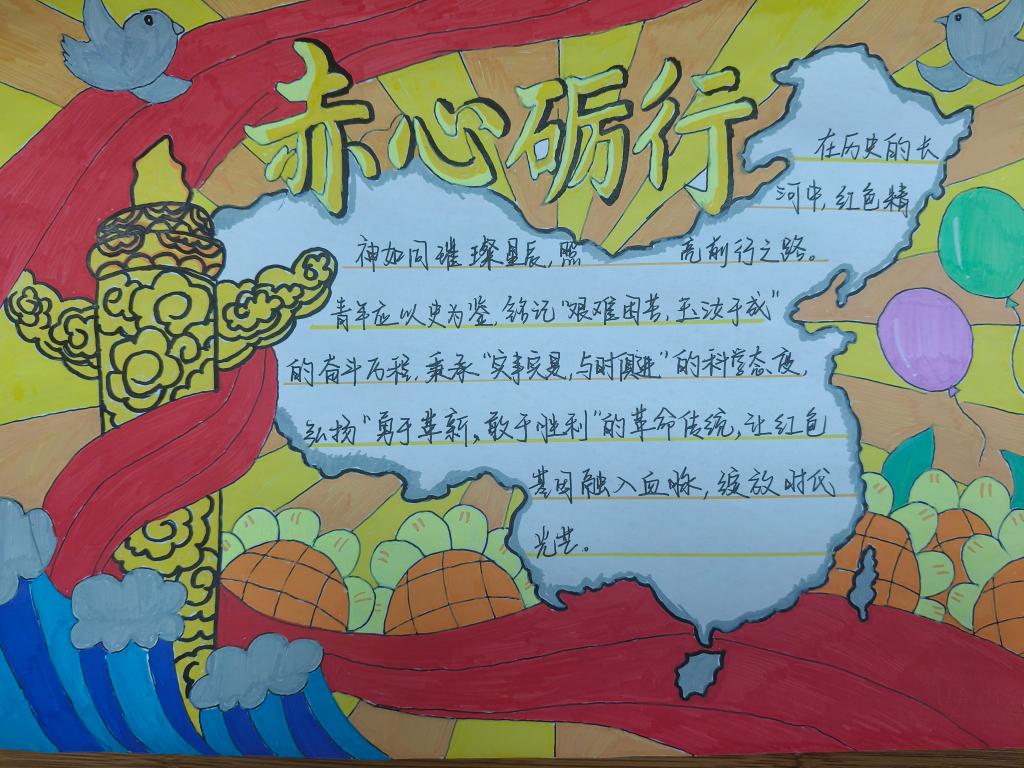 赤心砺行
在历史的长
河中,红色精
神如同璀璨星辰,照亮前行之路。
青年应以史为鉴,铭记“艰难困苦,玉汝于成”
的奋斗历程,秉承“实事求是,与时俱进”的科学态度,
弘扬“勇于革新,敢于胜利”的革命传统,让红色
基因融入血脉,绽放时代
光芒。